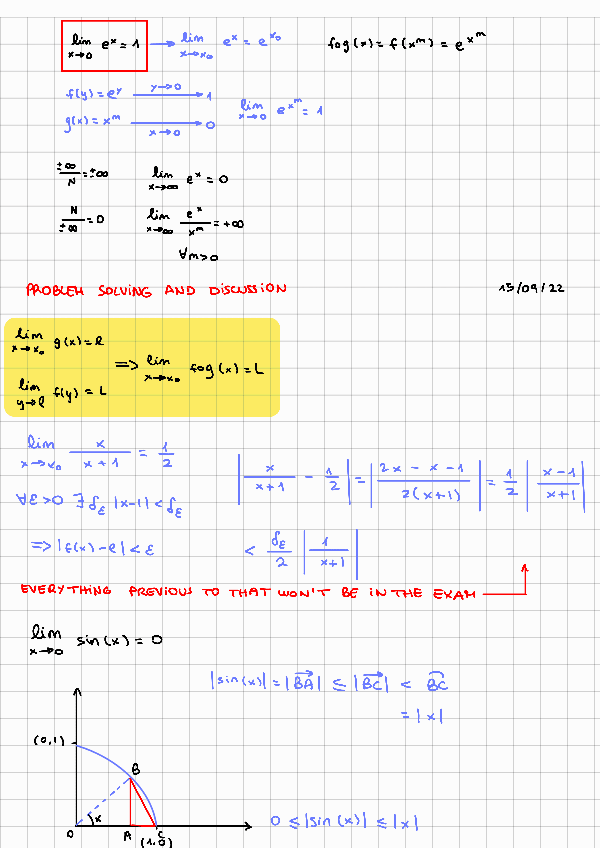 lim x→0 e^x = 1 → lim x→x₀ e^x = e^x₀
fog(x) = f(x^m) = e^x^m
f(y) = e^y y→0 → 1
g(x) = x^m x→0 → 0
lim x→0 e^x^m = 1
±∞/N = ±∞
lim x→∞ e^x = 0
N/±∞ = 0
lim x→∞ e^x/x^m = +∞
∀m>0
PROBLEM SOLVING AND DISCUSSION
15/09/22
lim x→x₀ g(x) = l
lim y→l f(y) = L
=> lim x→x₀ fog(x) = L
lim x→x₀ x/(x+1) = 1/2
|x/(x+1) - 1/2| = |(2x - x - 1)/(2(x+1))| = 1/2 |(x-1)/(x+1)|
∀ε>0 ∃δ_ε |x-1| < δ_ε
=> |f(x) - l| < ε
< δ_ε/2 |1/(x+1)|
EVERYTHING PREVIOUS TO THAT WON'T BE IN THE EXAM
lim x→0 sin(x) = 0
|sin(x)| = |BA| ≤ |BC| < BC
= |x|
(0,1)
B
x
O A C
(1,0)
0 ≤ |sin(x)| ≤ |x|